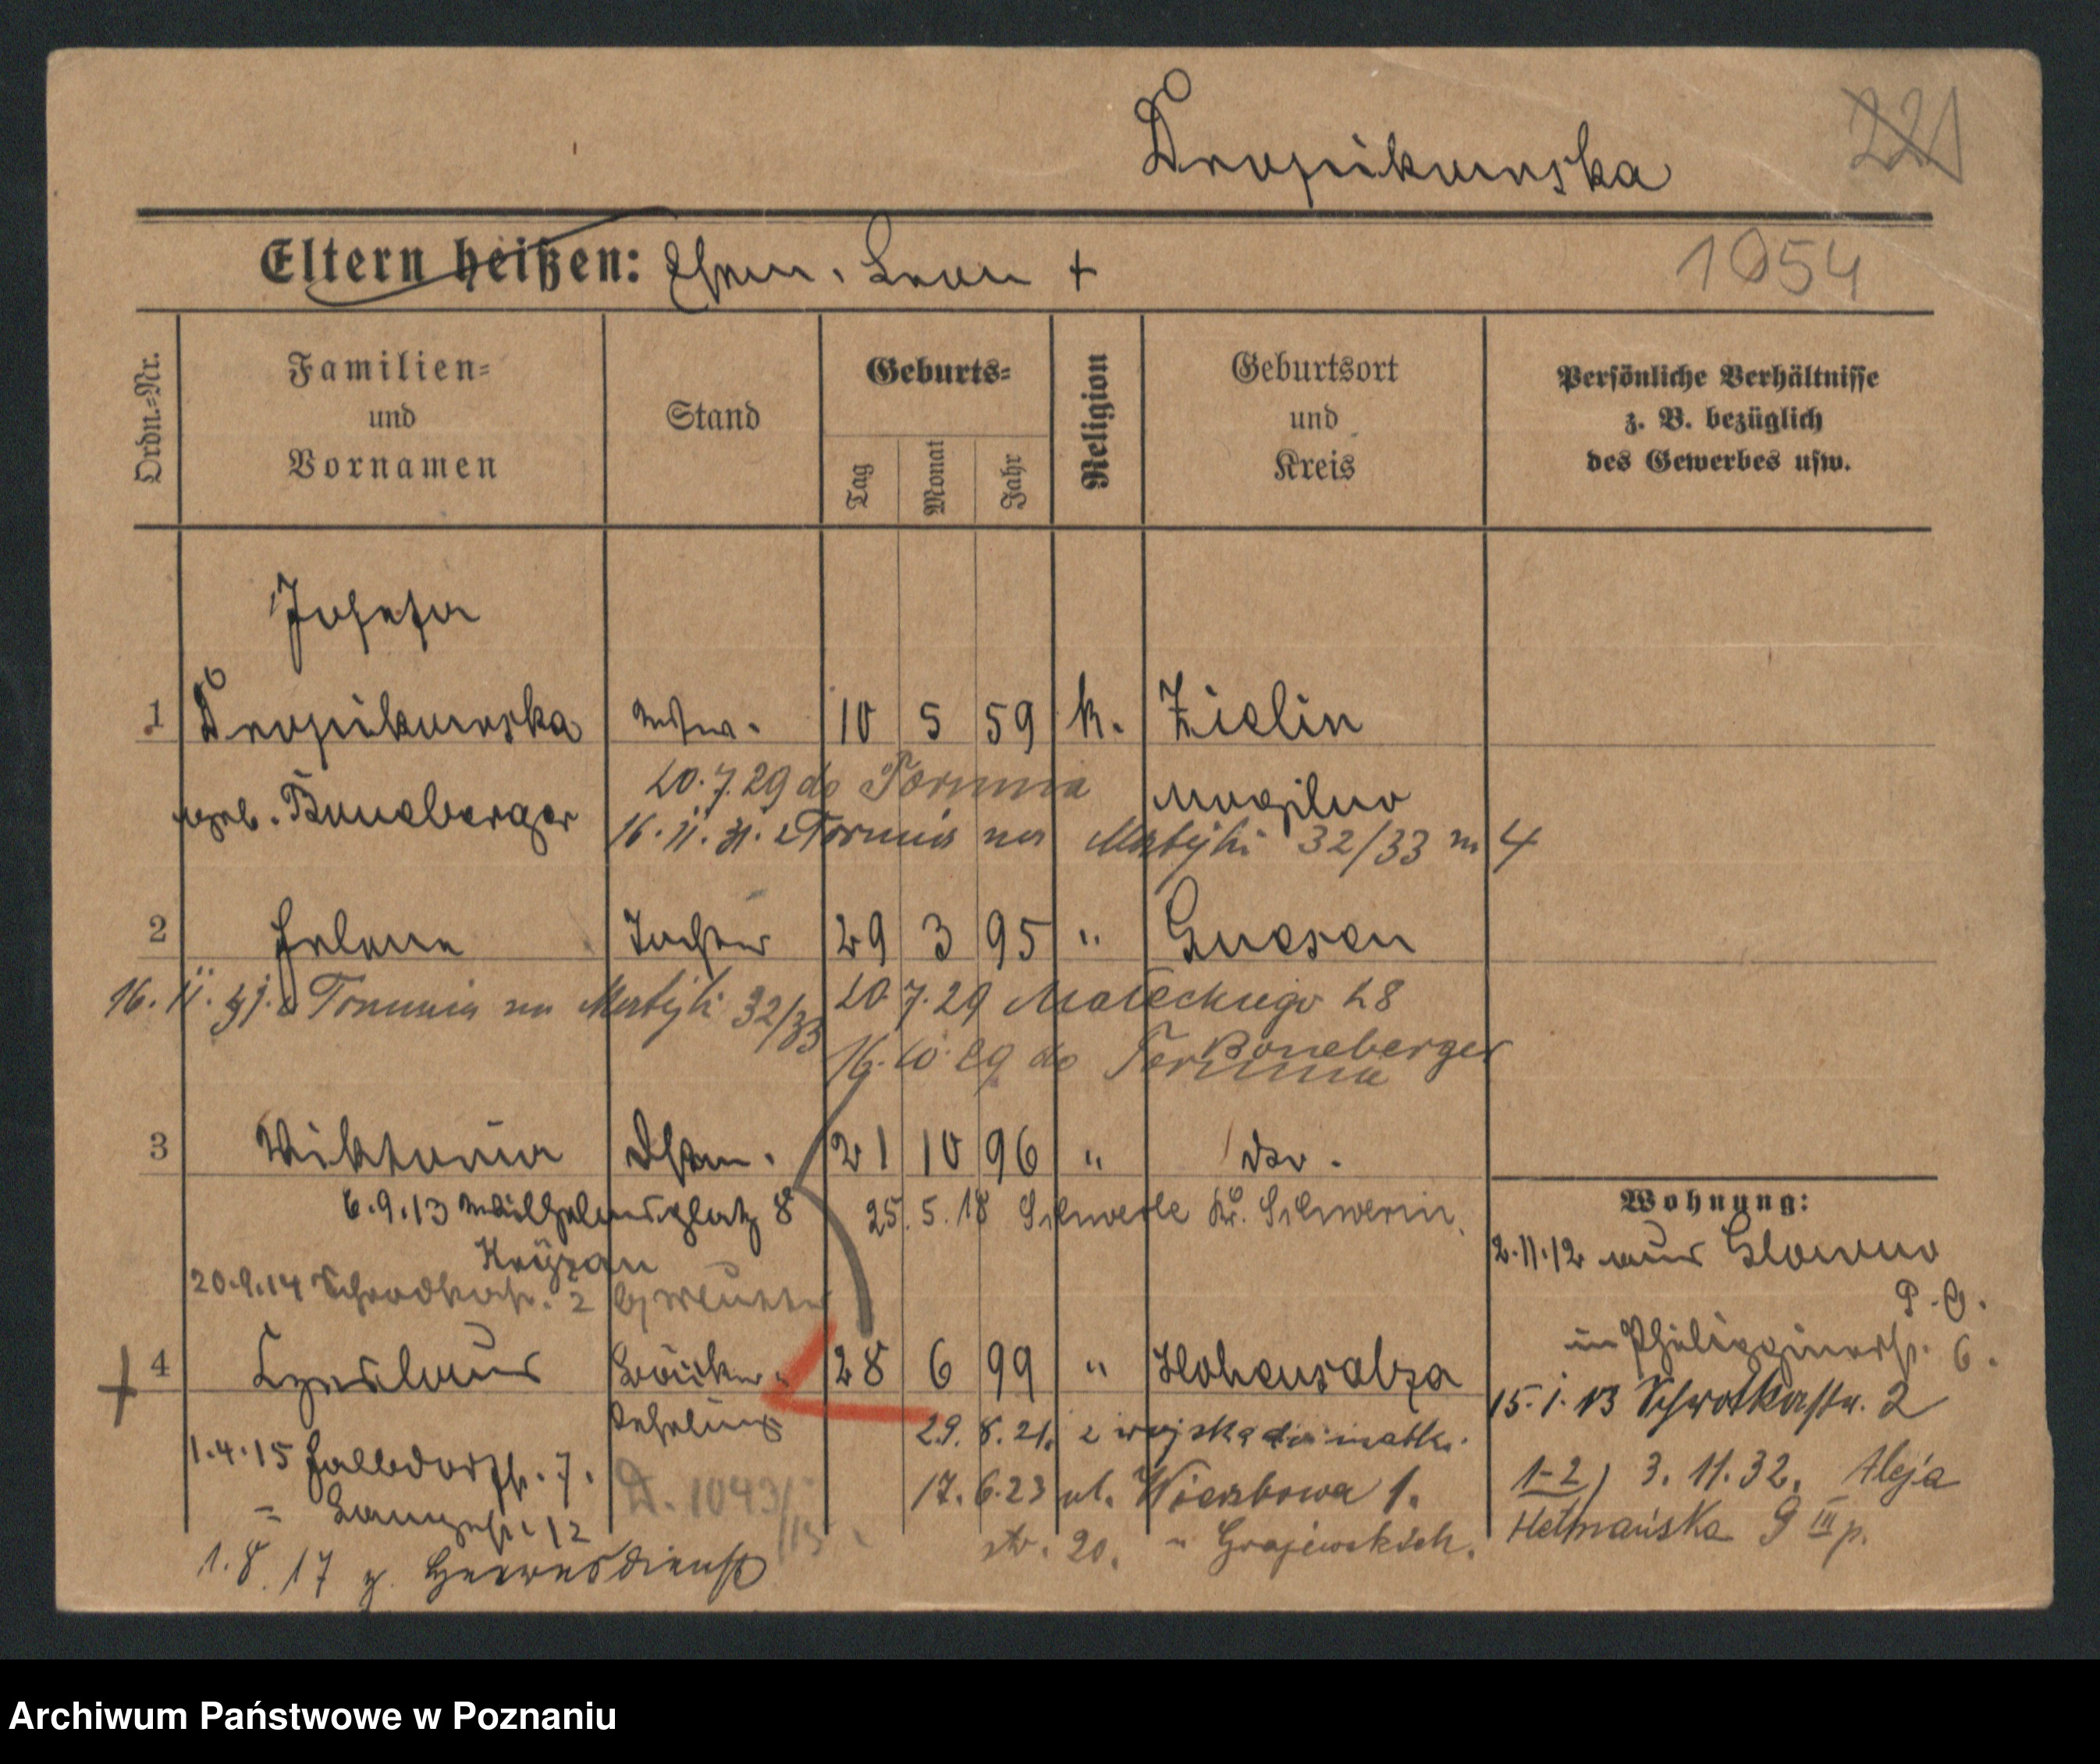 221
Eltern heißen: Ehem. Leon +
1054
Ordn.-Nr.
Familien- und Vornamen
Stand
Geburts-
Tag
Monat
Jahr
Religion
Geburtsort und Kreis
Persönliche Verhältnisse
z. B. bezüglich
des Gewerbes usw.
Josefa
1 Wtw. 10 5 59 k. Zielin
20.7.29 do Torunia
Mogilno
geb.
16.11.31. z Torunia na Matejki 32/33 m 4
2 Helene Tochter 29 3 95 " Gnesen
16.11.31. z Torunia na Matejki 32/33
20.7.29 Małeckiego 28
Boneberger
16.10.29 do Torunia
3 Viktoria 21 10 96 " do.
6.9.13 Wilhelmsplatz 8
25.5.18 Kr. Schwerin.
Wohnung:
2.11.12 aus Glowno
P.O.
20.9.14 2
in Philippinerstr. 6.
4 Czeslaus Bäcker 28 6 99 " Hohensalza
lehrling
15.1.13 2
29.8.21. z wojska do matki.
1.4.15 7.
17.6.23 ul. Wierzbowa 1.
1-2) 3.11.32. Aleja
D. 1043/13
Hetmańska 9 III p.
" Langestr. 12
str. 20. " Grajewskich.
1.8.17 z. Heeresdienst
Archiwum Państwowe w Poznaniu